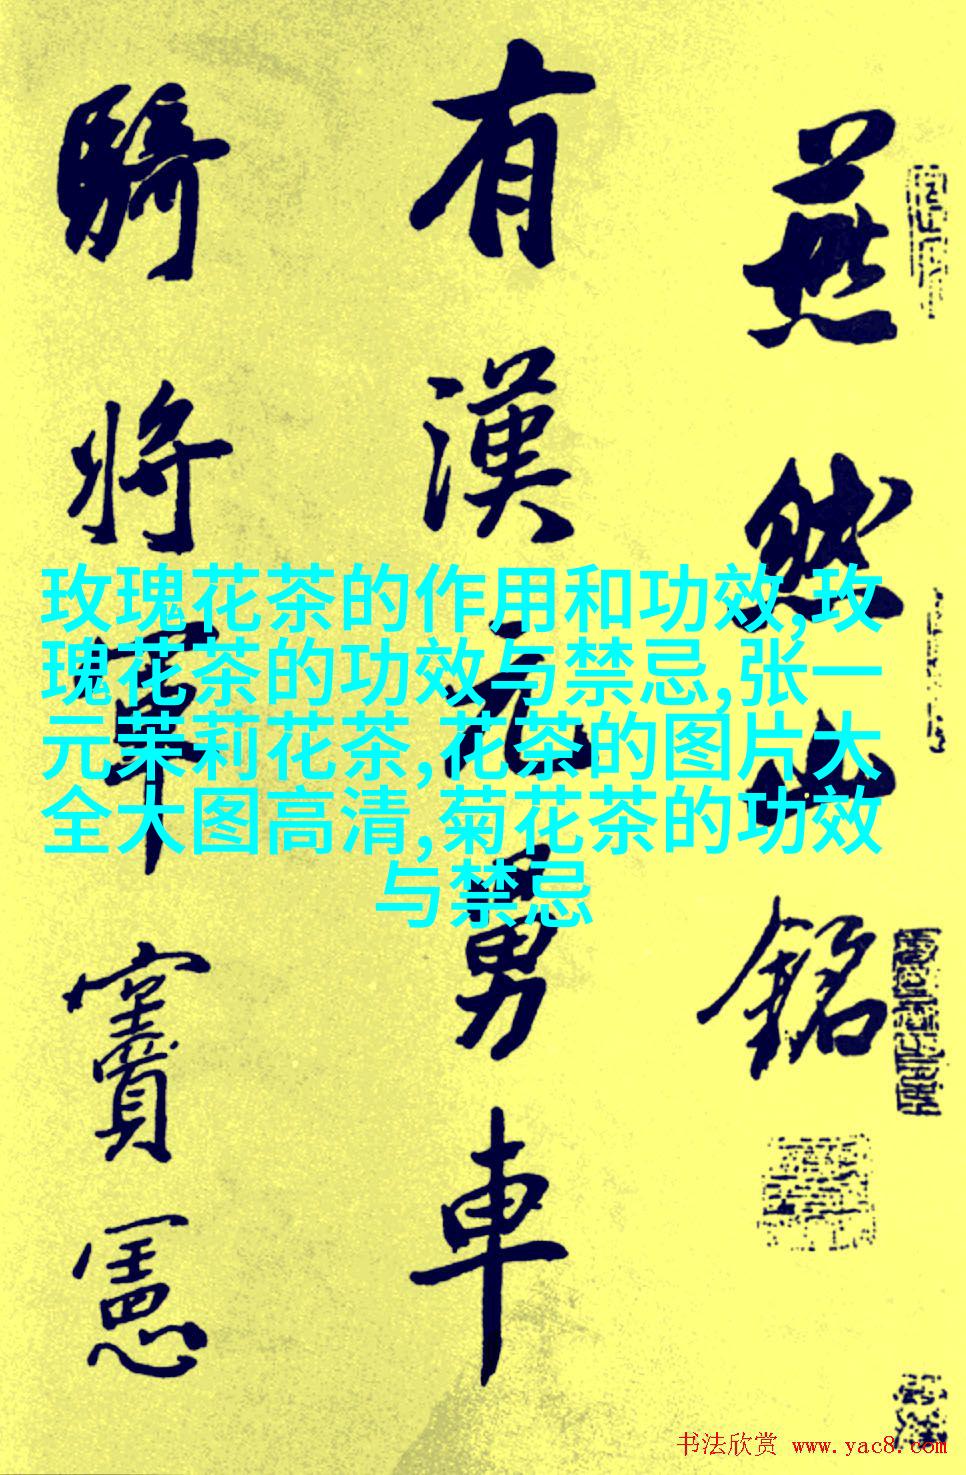 燕然山銘
有漢元舅車
騎將軍竇憲
玫瑰花茶的作用和功效,玫
瑰花茶的功效与禁忌,张一
元茉莉花茶,花茶的图片大
全大图高清,菊花茶的功效
与禁忌
书法欣赏 www.yac8.com